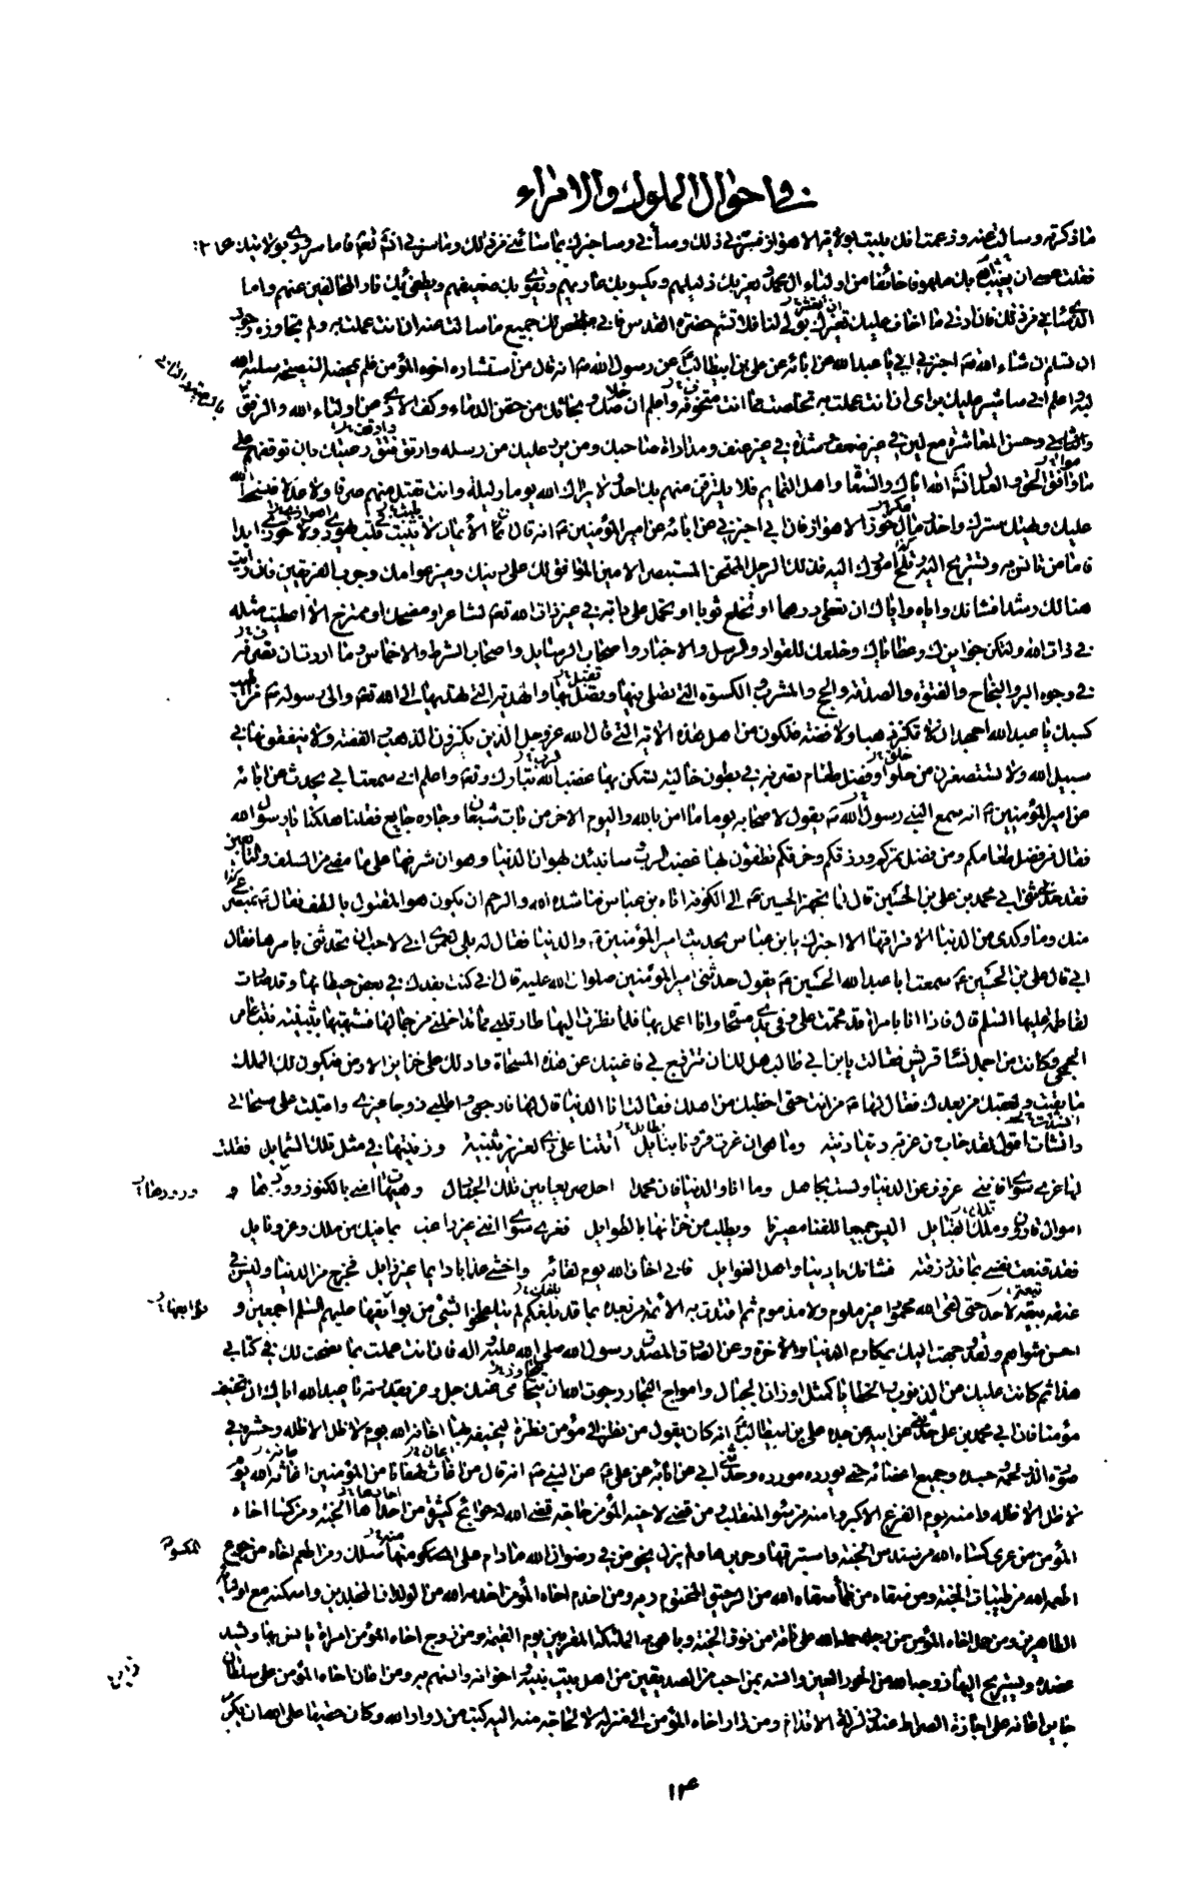 في احوال الملوك والامراء
ما ذكرته وسالت عنه وزعمت انك بليت بولاية الاهواز فسرني ذلك وساءني وساخبرك بما ساءني من ذلك وما سرني انشاء الله تعالى فاما سروري بولايتك
فقلت عسى ان يغيث الله بك ملهوفا خائفا من اولياء آل محمد ويعز بك ذليلهم ويكسو بك عاريهم ويقوي بك ضعيفهم ويطفئ بك نار المخالفين عنهم واما
الذي ساءني من ذلك فان ادنى ما اخاف عليك تعثرك بولي لنا فلا تشم حضيرة القدس فاني ملخص لك جميع ما سالت عنه ان انت عملت به ولم تجاوزه رجوت
ان تسلم ان شاء الله اخبرني ابي يا عبد الله عن ابائه عن علي بن ابيطالب عن رسول الله انه قال من استشاره اخوه المؤمن فلم يمحضه النصيحة سلبه الله
لبه واعلم اني ساشير عليك براي ان انت عملت به تخلصت مما انت متخوفه واعلم ان خلاصك ونجاتك من حقن الدماء وكف الاذى من اولياء الله والرفق
والتاني وحسن المعاشرة مع لين في غير ضعف وشدة في غير عنف ومداراة صاحبك ومن يرد عليك من رسله وارتق فتق رعيتك بان توقفهم على
ما وافق الحق والعدل انشاء الله اياك والسعاة واهل النمايم فلا يلتزقن منهم بك احد ولا يراك الله يوما وليلة وانت تقبل منهم صرفا ولا عدلا فيسخط الله
عليك ويهتك سترك واحذر مكر خوز الاهواز فان ابي اخبرني عن ابائه عن امير المؤمنين انه قال الايمان لا يثبت في قلب يهودي ولا خوزي ابدا
فاما من تانس به وتستريح اليه وتلجئ امورك اليه فذلك الرجل الممتحن المستبصر الامين الموافق لك على دينك وميز عوامك وجرب الفريقين فان رايت
هنالك رشدا فشانك واياه واياك ان تعطي درهما او تخلع ثوبا او تحمل على دابة في غير ذات الله تعالى لشاعر او مضحك او ممتزح الا اعطيت مثله
في ذات الله ولتكن جوايزك وعطاياك وخلعك للقواد والرسل والاجناد واصحاب الرسايل واصحاب الشرط والاخماس وما اردت ان تصرفه
في وجوه البر والنجاح والفتوة والصدقة والحج والمشرب والكسوة التي تصلي فيها وتصل بها والهدية التي تهديها الى الله تعالى والى رسوله من اطيب
كسبك يا عبد الله اجهد ان لا تكنز ذهبا ولا فضة فتكون من اهل هذه الاية التي قال الله عز وجل الذين يكنزون الذهب والفضة ولا ينفقونها في
سبيل الله ولا تستصغرن من حلو او فضل طعام تصرفه في بطون خالية تسكن بها غضب الله تبارك وتعالى واعلم اني سمعت ابي يحدث عن ابائه
عن امير المؤمنين انه سمع النبي رسول الله يقول لاصحابه يوما ما امن بالله واليوم الاخر من بات شبعان وجاره جايع فقلنا هلكنا يا رسول الله
فقال من فضل طعامكم ومن فضل تمركم ورزقكم وخرقكم تطفون بها غضب الرب سانبئك بهوان الدنيا وهوان شرفها على ما مضى من السلف والتابعين
فقد حدثني ابي محمد بن علي بن الحسين قال لما تجهز الحسين الى الكوفة اتاه بن عباس فناشده الله والرحم ان يكون هو المقتول بالطف فقال
منك وما وكدي من الدنيا الا فراقها الا اخبرك يا بن عباس بحديث امير المؤمنين والدنيا فقال له بلى لعمري اني لاحب ان تحدثني بامرها فقال
ابي قال علي بن الحسين سمعت ابا عبد الله الحسين يقول حدثني امير المؤمنين صلوات الله عليه قال اني كنت بفدك في بعض حيطانها وقد صارت
لفاطمة عليها السلم قال فاذا انا بامراة قد قحمت علي وفي يدي مسحاة وانا اعمل بها فلما نظرت اليها طار قلبي مما تداخلني من جمالها فشبهتها ببثينة بنت عامر
الجمحي وكانت من اجمل نساء قريش فقالت يا بن ابي طالب هل لك ان تتزوج بي فاغنيك عن هذه المسحاة وادلك على خزاين الارض فيكون لك الملك
ما بقيت ولعقبك من بعدك فقال لها من انت حتى اخطبك من اهلك فقالت انا الدنيا قال لها فارجعي واطلبي زوجا غيري واقبلت على مسحاتي
وانشات اقول لقد خاب من غرته دنيا دنية وما هي ان غرت قرونا بنايل اتتنا على زي العزيز بثينة وزينتها في مثل تلك الشمايل فقلت
لها غري سواي فانني عزوف عن الدنيا ولست بجاهل وما انا والدنيا فان محمدا احل صريعا بين تلك الجنادل وهيهات امني بالكنوز وودها
اموال قارون وملك القبايل اليس جميعا للفناء مصيرنا ويطلب من خزانها بالطوايل فغري سواي انني غير راغب بما فيك من ملك وعز ونايل
فقد قنعت نفسي بما قد رزقته فشانك يا دنيا واهل الغوايل فاني اخاف الله يوم لقائه واخشى عذابا دايما غير زايل فخرج من الدنيا وليس في
عنقه تبعة لاحد حتى لقي الله محمودا غير ملوم ولا مذموم ثم اقتدت به الائمة من بعده بما قد بلغكم لم يتلطخوا بشئ من بوائقها عليهم السلم اجمعين و
احسن مثواهم ولقد وجهت اليك بمكارم الدنيا والاخرة وعن الصادق المصدق رسول الله صلى الله عليه واله فان انت عملت بما نصحت لك في كتابي
هذا ثم كانت عليك من الذنوب والخطايا كمثل اوزان الجبال وامواج البحار رجوت الله ان يتجافى عنك جل وعز بقدرته يا عبد الله اياك ان تخيف
مؤمنا فان ابي محمد بن علي حدثني عن ابيه عن جده علي بن ابيطالب انه كان يقول من نظر الى مؤمن نظرة ليخيفه بها اخافه الله يوم لا ظل الا ظله وحشره في
صورة الذر لحمه جسده وجميع اعضائه حتى يورده مورده وحدثني ابي عن ابائه عن علي عن النبي انه قال من اغاث لهفانا من المؤمنين اغاثه الله يوم
لا ظل الا ظله وامنه يوم الفزع الاكبر وامنه من سوء المنقلب ومن قضى لاخيه المؤمن حاجة قضى الله له حوائج كثيرة من احداها الجنة ومن كسا اخاه
المؤمن من عري كساه الله من سندس الجنة واستبرقها وحريرها ولم يزل يخوض في رضوان الله ما دام على المكسو منها سلك ومن اطعم اخاه من جوع
اطعمه الله من طيبات الجنة ومن سقاه من ظمأ سقاه الله من الرحيق المختوم ريه ومن اخدم اخاه المؤمن اخدمه الله من الولدان المخلدين واسكنه مع اوليائه
الطاهرين ومن حمل اخاه المؤمن من رحله حمله الله على ناقة من نوق الجنة وباهى به الملئكة المقربين يوم القيمة ومن زوج اخاه المؤمن امراة يانس بها وتشد
عضده ويستريح اليها زوجه الله من الحور العين وانسه بمن احب من الصديقين من اهل بيت نبيه واخوانه وانسهم به ومن اعان اخاه المؤمن على سلطان
جاير اعانه على اجازة الصراط عند زلة الاقدام ومن زار اخاه المؤمن الى منزله لا لحاجة منه اليه كتب من زوار الله وكان حقيقا على الله ان يكرم
١٣